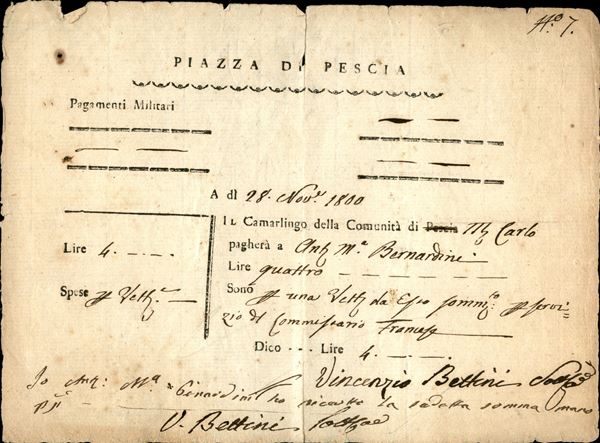 N.o 7.
PIAZZA DI PESCIA
Pagamenti Militari
A dì 28. Nov.e 1800
IL Camarlingo della Comunità di Pescia Carlo
pagherà a Ant. M.a Bernardini
Lire 4.
Lire quattro
Spese p Vett.a
Sono p una Vett.a da Esso p servi=
zio del Commissario Francese
Dico ... Lire 4.
Vincenzio Bettini
Io Ant: M.a Bernardini ho ricevuto la sudetta somma mano
p.p.a
V. Bettini